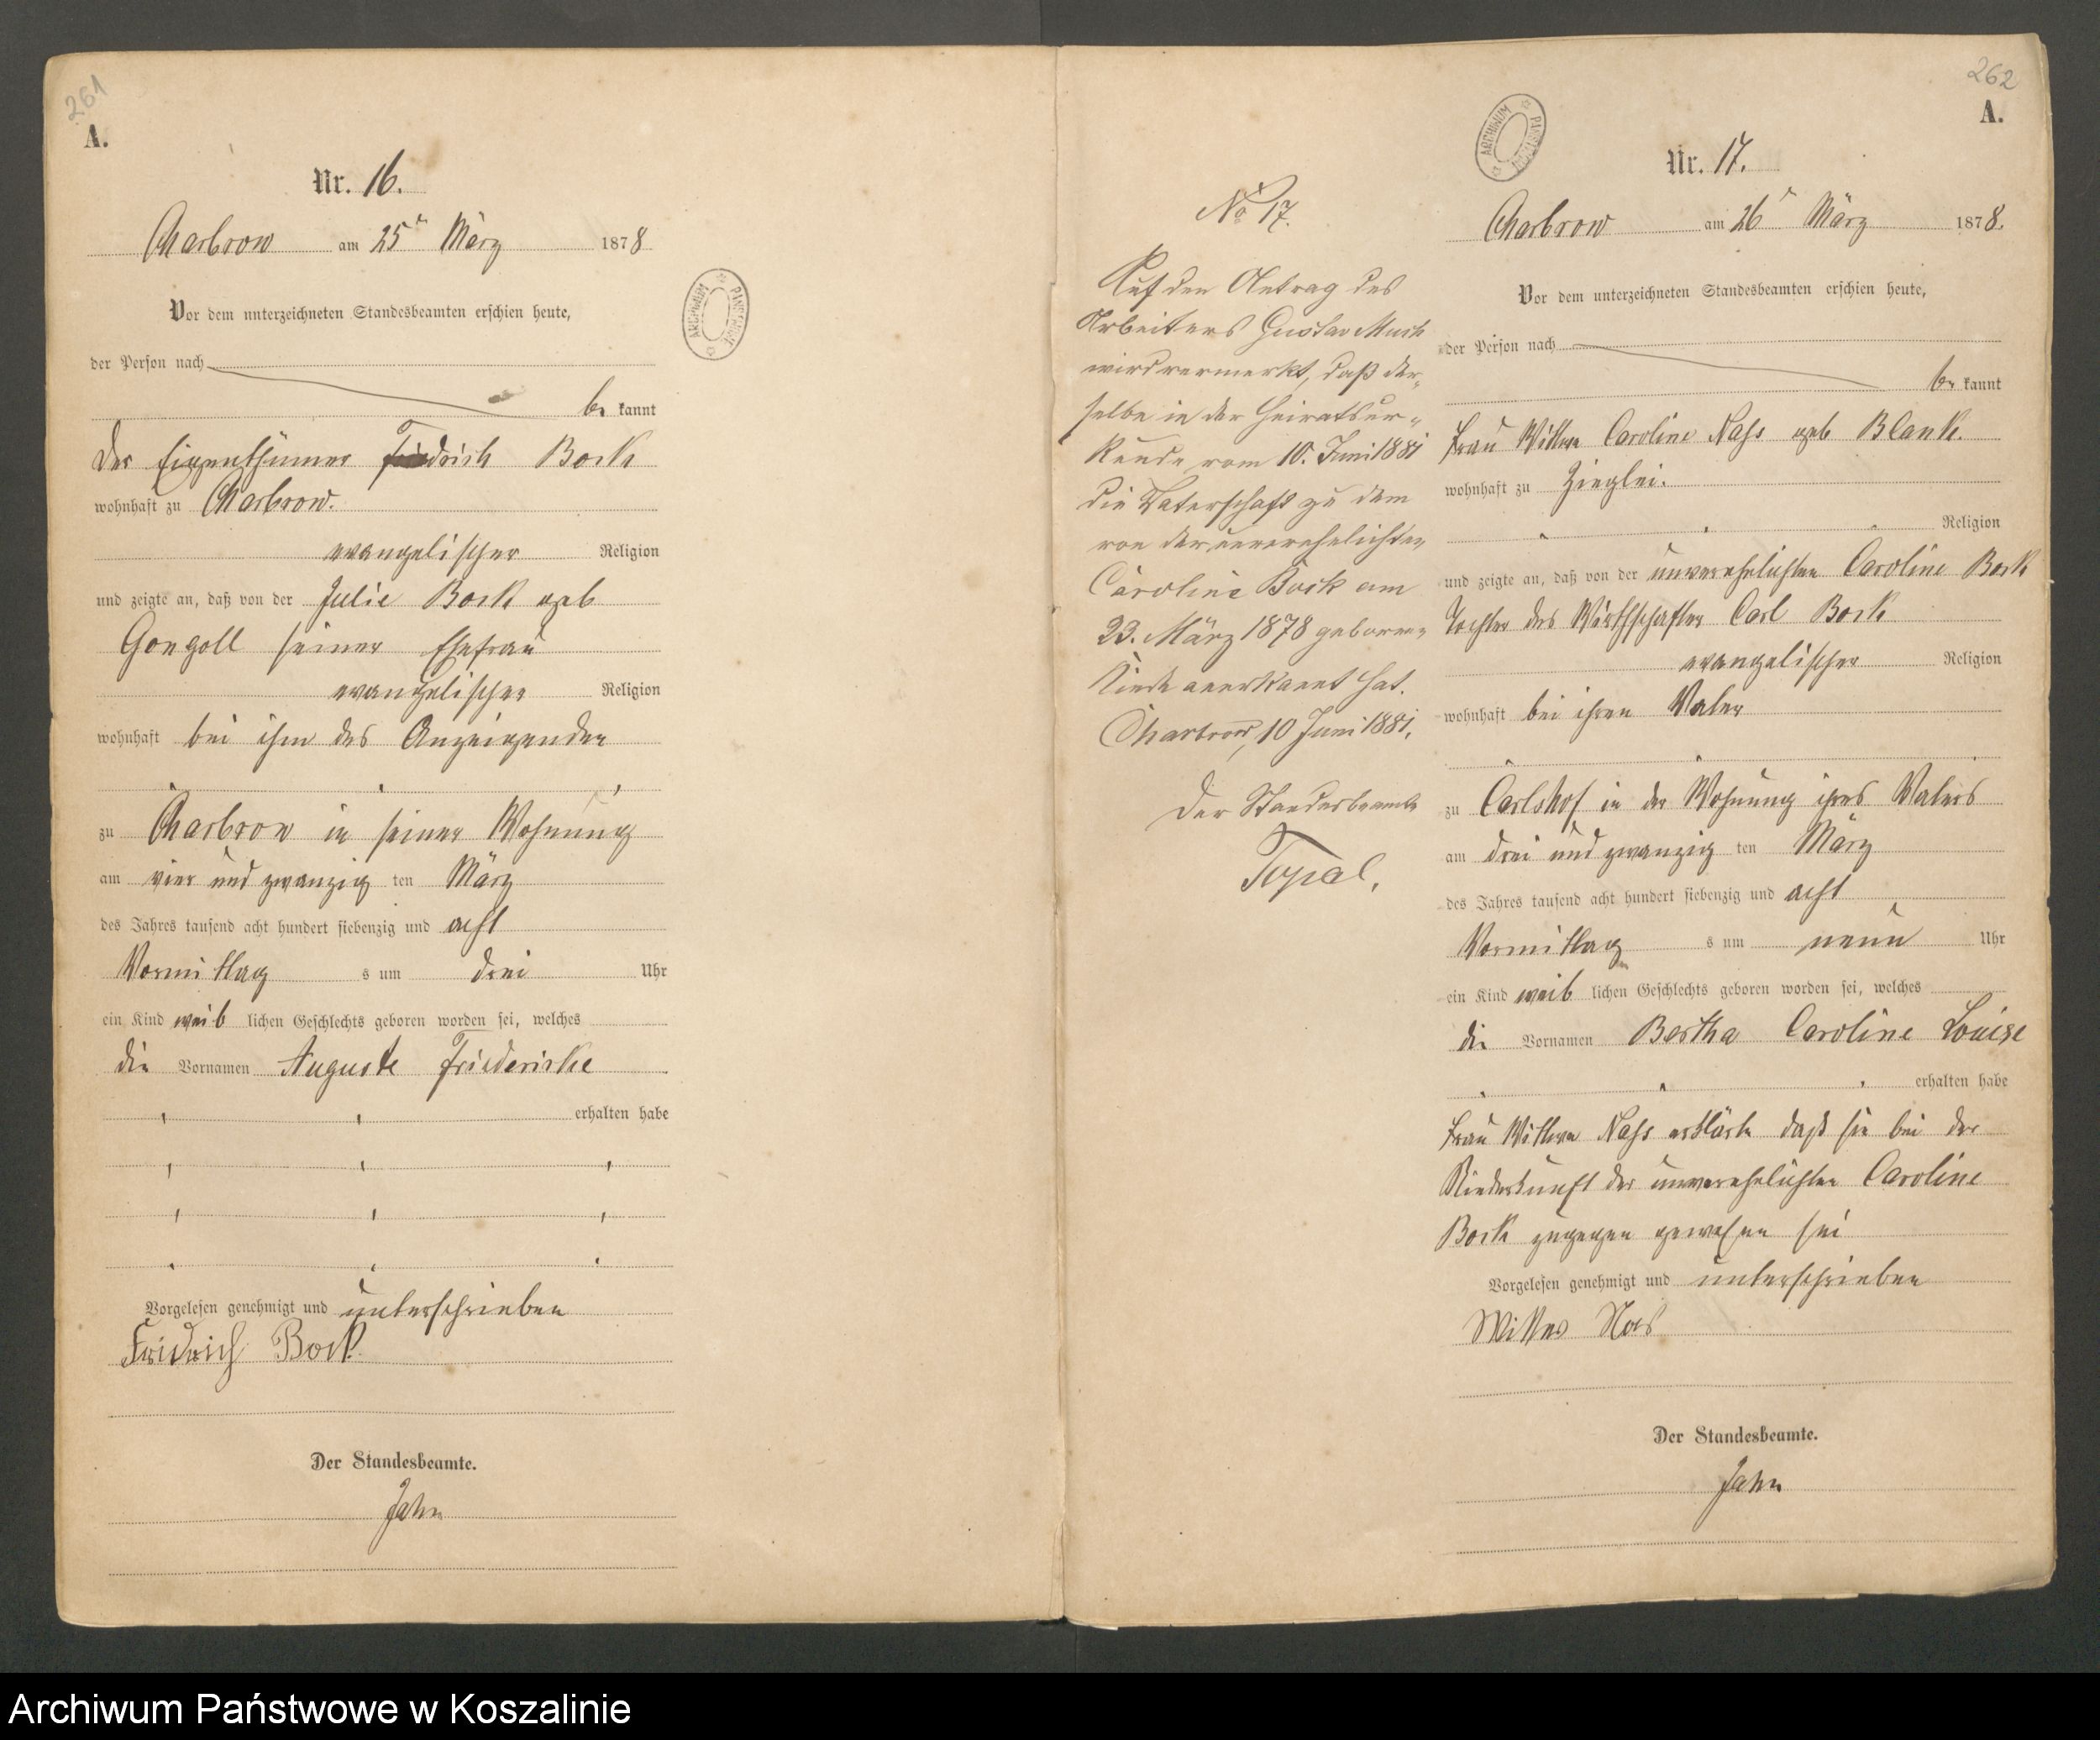 261
A.
Nr. 16.
Charbrow am 25ⁿ März 1878
Vor dem unterzeichneten Standesbeamten erschien heute,
der Person nach
be kannt
der Eigenthümer Friedrich Bock
wohnhaft zu Charbrow.
evangelischer Religion
und zeigte an, daß von der Julie Bock geb
Gongoll seiner Ehefrau
evangelischer Religion
wohnhaft bei ihm des Anzeigenden
zu Charbrow in seiner Wohnung
am vier und zwanzig ten März
des Jahres tausend acht hundert siebenzig und acht
Vormittag s um drei Uhr
ein Kind weib lichen Geschlechts geboren worden sei, welches
die Vornamen Auguste Friedericke
erhalten habe
Vorgelesen genehmigt und unterschrieben
Friedrich Bock
Der Standesbeamte.
Jahn
ARCHIWUM PAŃSTWOWE
No 17.
Auf den Antrag des
Arbeiters Gustav
wird vermerkt, daß der-
selbe in der Heiratsur-
kunde vom 10. Juni 1881
die Vaterschaft zu dem
von der unverehelichten
Caroline Bock am
23. März 1878 geborenen
Kinde anerkannt hat.
Charbrow, 10 Juni 1881.
Der Standesbeamte
Topal.
ARCHIWUM PAŃSTWOWE
262
A.
Nr. 17.
Charbrow am 26ⁿ März 1878.
Vor dem unterzeichneten Standesbeamten erschien heute,
der Person nach
be kannt
Frau Wittwe Caroline Nass geb Blank.
wohnhaft zu Zieglei.
Religion
und zeigte an, daß von der unverehelichten Caroline Bock
Tochter des Wirthschafter Carl Bock
evangelischer Religion
wohnhaft bei ihren Vater
zu Carlshof in der Wohnung ihres Vaters
am drei und zwanzig ten März
des Jahres tausend acht hundert siebenzig und acht
Vormittag s um neun Uhr
ein Kind weib lichen Geschlechts geboren worden sei, welches
die Vornamen Bertha Caroline Louise
erhalten habe
Frau Wittwe Nass erklärte daß sie bei der
Niederkunft der unverehelichten Caroline
Bock zugegen gewesen sei
Vorgelesen genehmigt und unterschrieben
Wittwe Nass
Der Standesbeamte.
Jahn
Archiwum Państwowe w Koszalinie